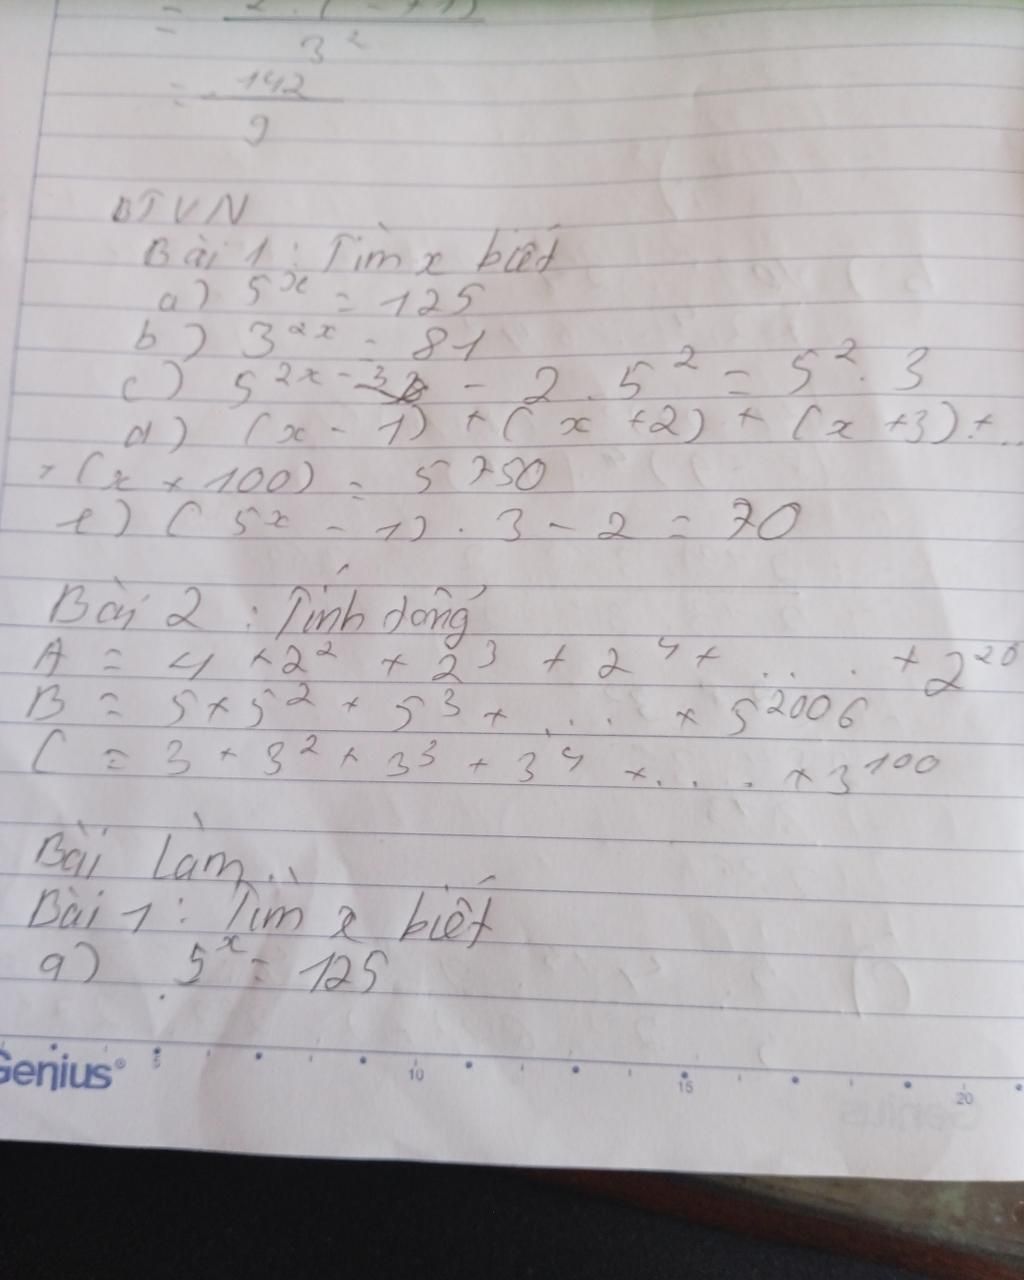 =
3²
= 142
9
BTVN
Bài 1 : Tìm x biết
a) 5ˣ = 125
b) 3²ˣ = 81
c) 5²ˣ⁻³ - 2 . 5² = 5² . 3
d) (x - 1) + ( x + 2) + (x + 3) + ...
+ (x + 100) = 5750
e) ( 5x - 1) . 3 - 2 = 70
Bài 2 : Tính tổng
A = 4 + 2² + 2³ + 2⁴ + .... + 2²⁰
B = 5 + 5² + 5³ + .... + 5²⁰⁰⁶
C = 3 + 3² + 3³ + 3⁴ + .... + 3¹⁰⁰
Bài Làm
Bài 1 : Tìm x biết
a) 5ˣ = 125
Genius® 5 10 15 20